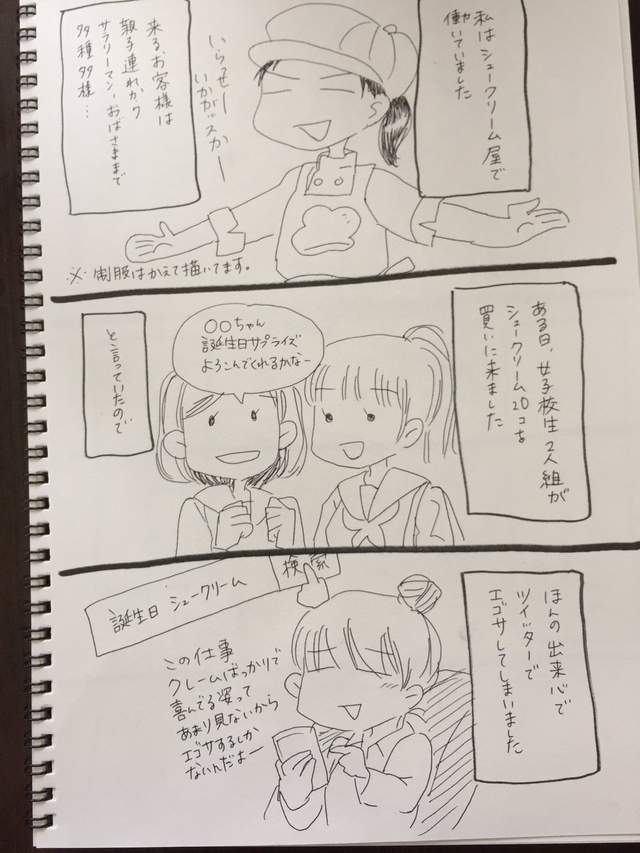 私はシュークリーム屋で
働いていました
いらっせー
いかがッスかー
来る、お客様は
親子連れから
サラリーマン、おばさままで
多種多様…
※制服はかえて描いてます。
ある日、女子校生2人組が
シュークリーム20コを
買いに来ました
○○ちゃん
誕生日サプライズ
よろこんでくれるかなー
と言っていたので
ほんの出来心で
ツイッターで
エゴサしてしまいました
誕生日 シュークリーム
検索
この仕事
クレームばっかりで
喜んでる姿って
あまり見ないから
エゴサするしか
ないんだよー